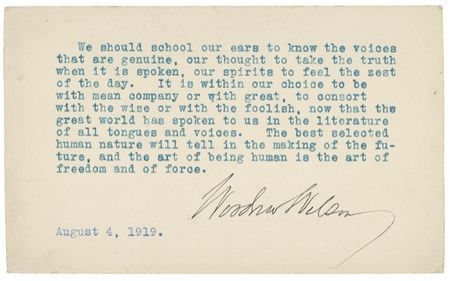 We should school our ears to know the voices
that are genuine, our thought to take the truth
when it is spoken, our spirits to feel the zest
of the day. It is within our choice to be
with mean company or with great, to consort
with the wise or with the foolish, now that the
great world has spoken to us in the literature
of all tongues and voices. The best selected
human nature will tell in the making of the fu-
ture, and the art of being human is the art of
freedom and of force.
Woodrow Wilson
August 4, 1919.